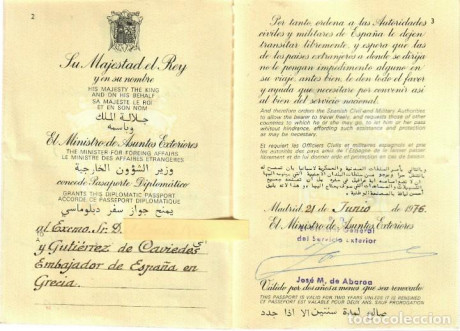 2
Su Majestad el Rey
y en su nombre
HIS MAJESTY THE KING
AND ON HIS BEHALF
SA MAJESTE LE ROI
ET EN SON NOM
جلالة الملك
وباسمه
El Ministro de Asuntos Exteriores
THE MINISTER FOR FOREING AFFAIRS
LE MINISTRE DES AFFAIRES ETRANGERES
وزير الشؤون الخارجية
concede Pasaporte Diplomático
GRANTS THIS DIPLOMATIC PASSPORT
ACCORDE CE PASSEPORT DIPLOMATIQUE
يمنح جواز سفر دبلوماسي
al Excmo. Sr. D.
y Gutiérrez de Caviedes
Embajador de España en
Grecia.
3
Por tanto, ordena a las Autoridades
civiles y militares de España le dejen
transitar libremente, y espera que las
de los países extranjeros a donde se dirija
no le pongan impedimento alguno en
su viaje, antes bien, le den todo el favor
y ayuda que necesitare por convenir así
al bien del servicio nacional.
And therefore orders the Spanish Civil and Military Authorities
to allow the bearer to travel freely, and requests those of other
countries to which he of she may go, to let him or her pass
without hindrance, affording such assistance and protection
as may be necessary.
Et requiert les Officiers Civils et militaires espagnols et prie
les autorités des pays amis de l'Espagne de le laisser passer
librement et de lui donner aide et protection en cas de besoin.
Madrid, 21 de Junio de 1976.
El Ministro de Asuntos Exteriores
General
del Servicio Exterior
José M. de Abaroa
Válido por dos años a menos que sea renovado
THIS PASSPORT IS VALID FOR TWO YEARS UNLESS IT IS RENEWED
CE PASSEPORT EST VALABLE POUR DEUX ANS, SAUF PROROGATION
صالح لمدة سنتين الا اذا جدد
todocoleccion